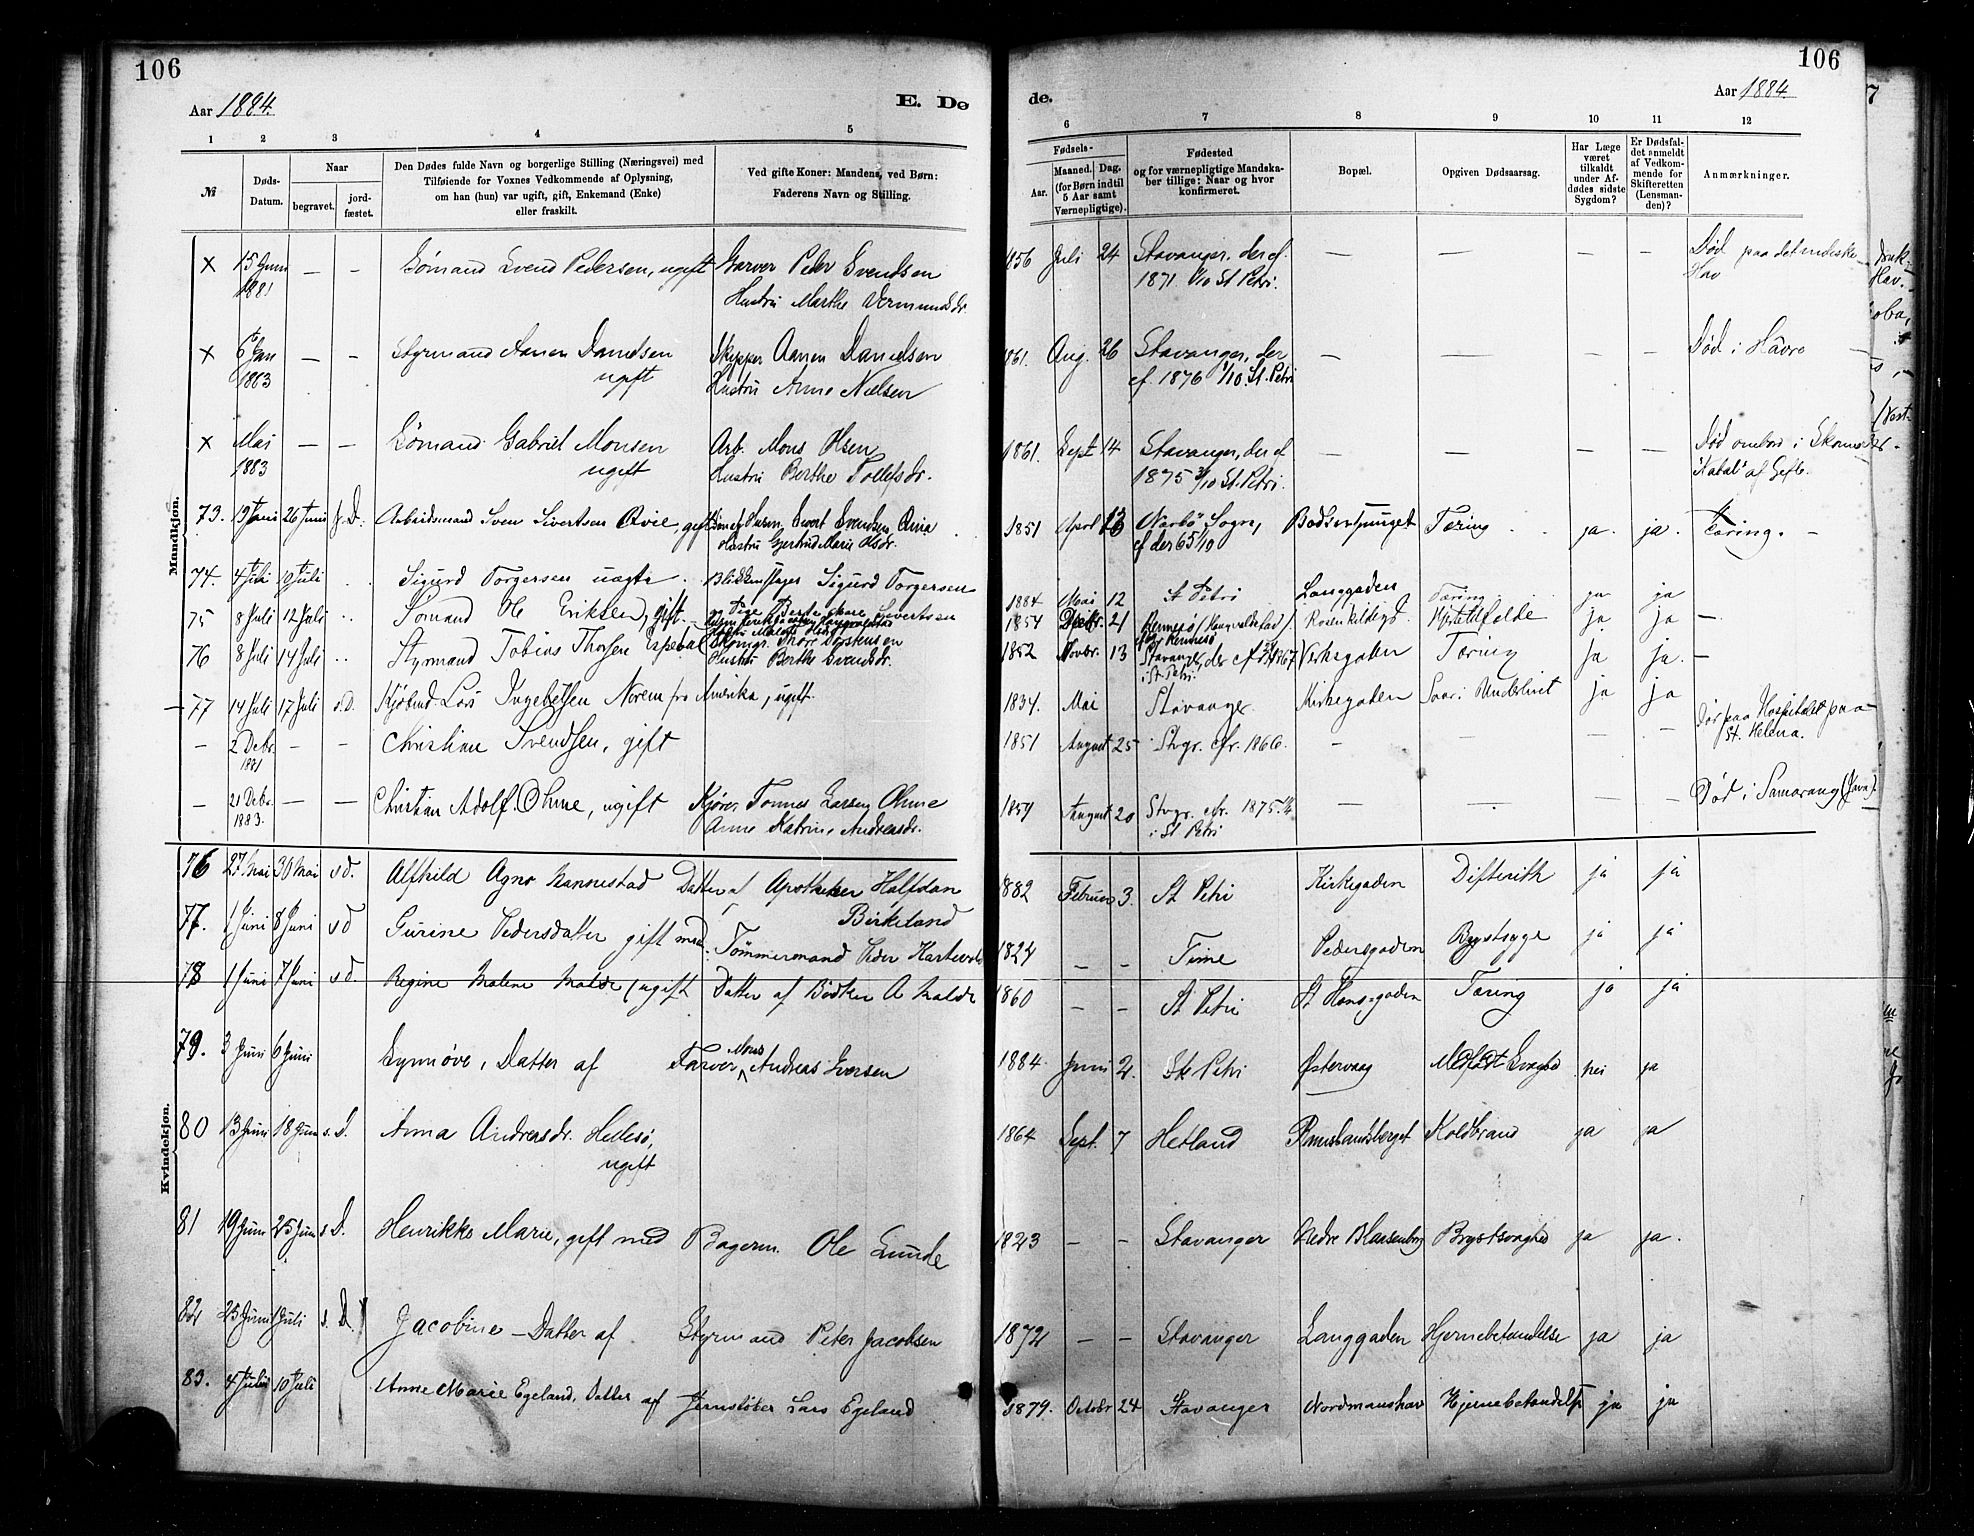 106
106
Aar 1884.
E. Dø
de.
Aar 1884.
1 2 3 4 5 6 7 8 9 10 11 12
№
Døds-
Datum.
Naar
begravet.
jord-
fæstet.
Den Dødes fulde Navn og borgerlige Stilling (Næringsvei) med
Tilføiende for Voxnes Vedkommende af Oplysning,
om han (hun) var ugift, gift, Enkemand (Enke)
eller fraskilt.
Ved gifte Koner: Mandens, ved Børn:
Faderens Navn og Stilling.
Fødsels-
Aar.
Maaned. Dag.
(for Børn indtil
5 Aar samt
Værnepligtige).
Fødested
og for værnepligtige Mandska-
ber tillige: Naar og hvor
konfirmeret.
Bopæl.
Opgiven Dødsaarsag.
Har Læge
været
tilkaldt
under Af-
dødes sidste
Sygdom?
Er Dødsfal-
det anmeldt
af Vedkom-
mende for
Skifteretten
(Lensman-
den)?
Anmærkninger.
Mandkjøn.
x 15 Juni — — Sømand Svend Pedersen, ugift Garver Peder Svendsen 1856 Juli 24 Stavanger, der cf. — — — — Død paa det indiske
1881 Hustru Marthe Vermundsdr. 1871 1/10 St Petri. Hav
x 6 Jan — — Styrmand Aanen Danielsen Skipper Aanen Danielsen 1861. Aug. 26 Stavanger, der — — — — Død i Hävre
1883 ugift Hustru Anne Nielsen cf. 1876 1/10. St. Petri
x Mai — — Sømand Gabriel Monsen Arb. Mons Olsen 1861. Sept 14 Stavanger, der cf — — — — Død ombord i
1883 ugift Hustru Berthe Tollefsdr. 1875 3/10 St. Petri. "Natal" af Gefle.
73. 19 Juni 26 Juni s. D. Arbeidsmand Sven Sivertsen gift 1851 April Narbø Sogn, Tæring ja. ja. Tæring.
Hustru Gjertrud Marie Olsdr. cf der 65
74. 4 Juli 10 Juli Sigurd Torgersen uægte Blikkenslager Sigurd Torgersen 1884 Mai 12 St Petri Langgaden Tæring ja ja
75 8 Juli 12 Juli Sømand Ole Eriksen, gift 1854 21 Rosenkildegd. ja ja —
76 8 Juli 14 Juli Styrmand Tobias Thorsen Espedal 1852 Novbr. 13 Stavanger, der cf Kirkegaden Tæring ja ja. —
Hustru Berthe Svendsdr. i St Petri.
77 14 Juli 17 Juli s.D. Kjøbmd. Lars Ingebretsen Norem fra Amerika, ugift 1834. Mai Stavanger Kirkegaden Saar i Underlivet ja ja
— 2 Debr. — — Christian Svendsen, gift 1851 August 25 Stvgr. cfr. 1866. — — — Død paa Hospitalet paa
1881 St. Helena.
— 21 Debr. — — Christian Adolf Ohme, ugift Tønnes Larsen Ohme August 20 Stvgr. cfr. 1875 — — — — Død i Samarang (Java).
1883. Anne Katrine Andreasdr. i St Petri
Kvindekjøn.
76 27 Mai 30 Mai s d. Alfhild Agno Nannestad Datter af Apotheker Halfdan 1882 Februar 3. St Petri Kirkegaden Difterith ja ja
Birkeland
77. 1 Juni 8 Juni s d Gurine Pedersdatter gift med Tømmermand Peder 1824 — — Time Pedersgaden Brystsyge ja ja
78 1 Juni 7 Juni s d. Regine Malene Malde (ugift Datter af Bødker A Malde 1860 — — St Petri St Hansgaden Tæring ja ja
79. 3 Juni 6 Juni Synnøve, Datter af Farver Mons Andreas Iversen 1884. Juni 2. St. Petri Østervaag Medfødt Svaghed nei ja
80 13 Juni 18 Juni s. D. Anna Andreasdr. Hellesø, 1864 Sept. 7 Hetland Koldbrand ja ja
ugift
81 19 Juni 25 Juni s D. Henrikke Marie, gift med Bagerm. Ole Lunde 1823 — — Stavanger Nedre Blaasenborg Brystsvaghed ja ja.
82 25 Juni 1 Juli s. D. Jacobine — Datter af Styrmand Peter Jacobsen 1872 — — Stavanger Langgaden Hjernebetændelse ja ja
83. 4 Juli 10 Juli Anne Marie Egeland, Datter af Jernstøber Lars Egeland 1879. October 24 Stavanger Nordmanshav Hjernebetændelse ja ja